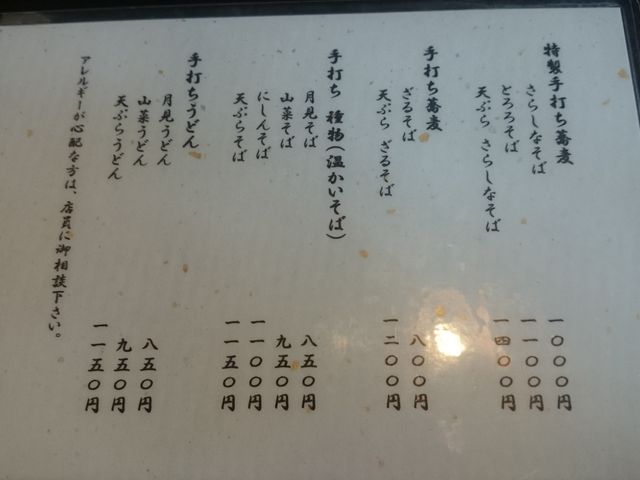 特製手打ち蕎麦
さらしなそば 一〇〇〇円
とろろそば 一一〇〇円
天ぷら さらしなそば 一四〇〇円
手打ち蕎麦
ざるそば 八〇〇円
天ぷら ざるそば 一二〇〇円
手打ち 種物(温かいそば)
月見そば 八五〇円
山菜そば 九五〇円
にしんそば 一一〇〇円
天ぷらそば 一一五〇円
手打ちうどん
月見うどん 八五〇円
山菜うどん 九五〇円
天ぷらうどん 一一五〇円
アレルギーが心配な方は、店員に御相談下さい。